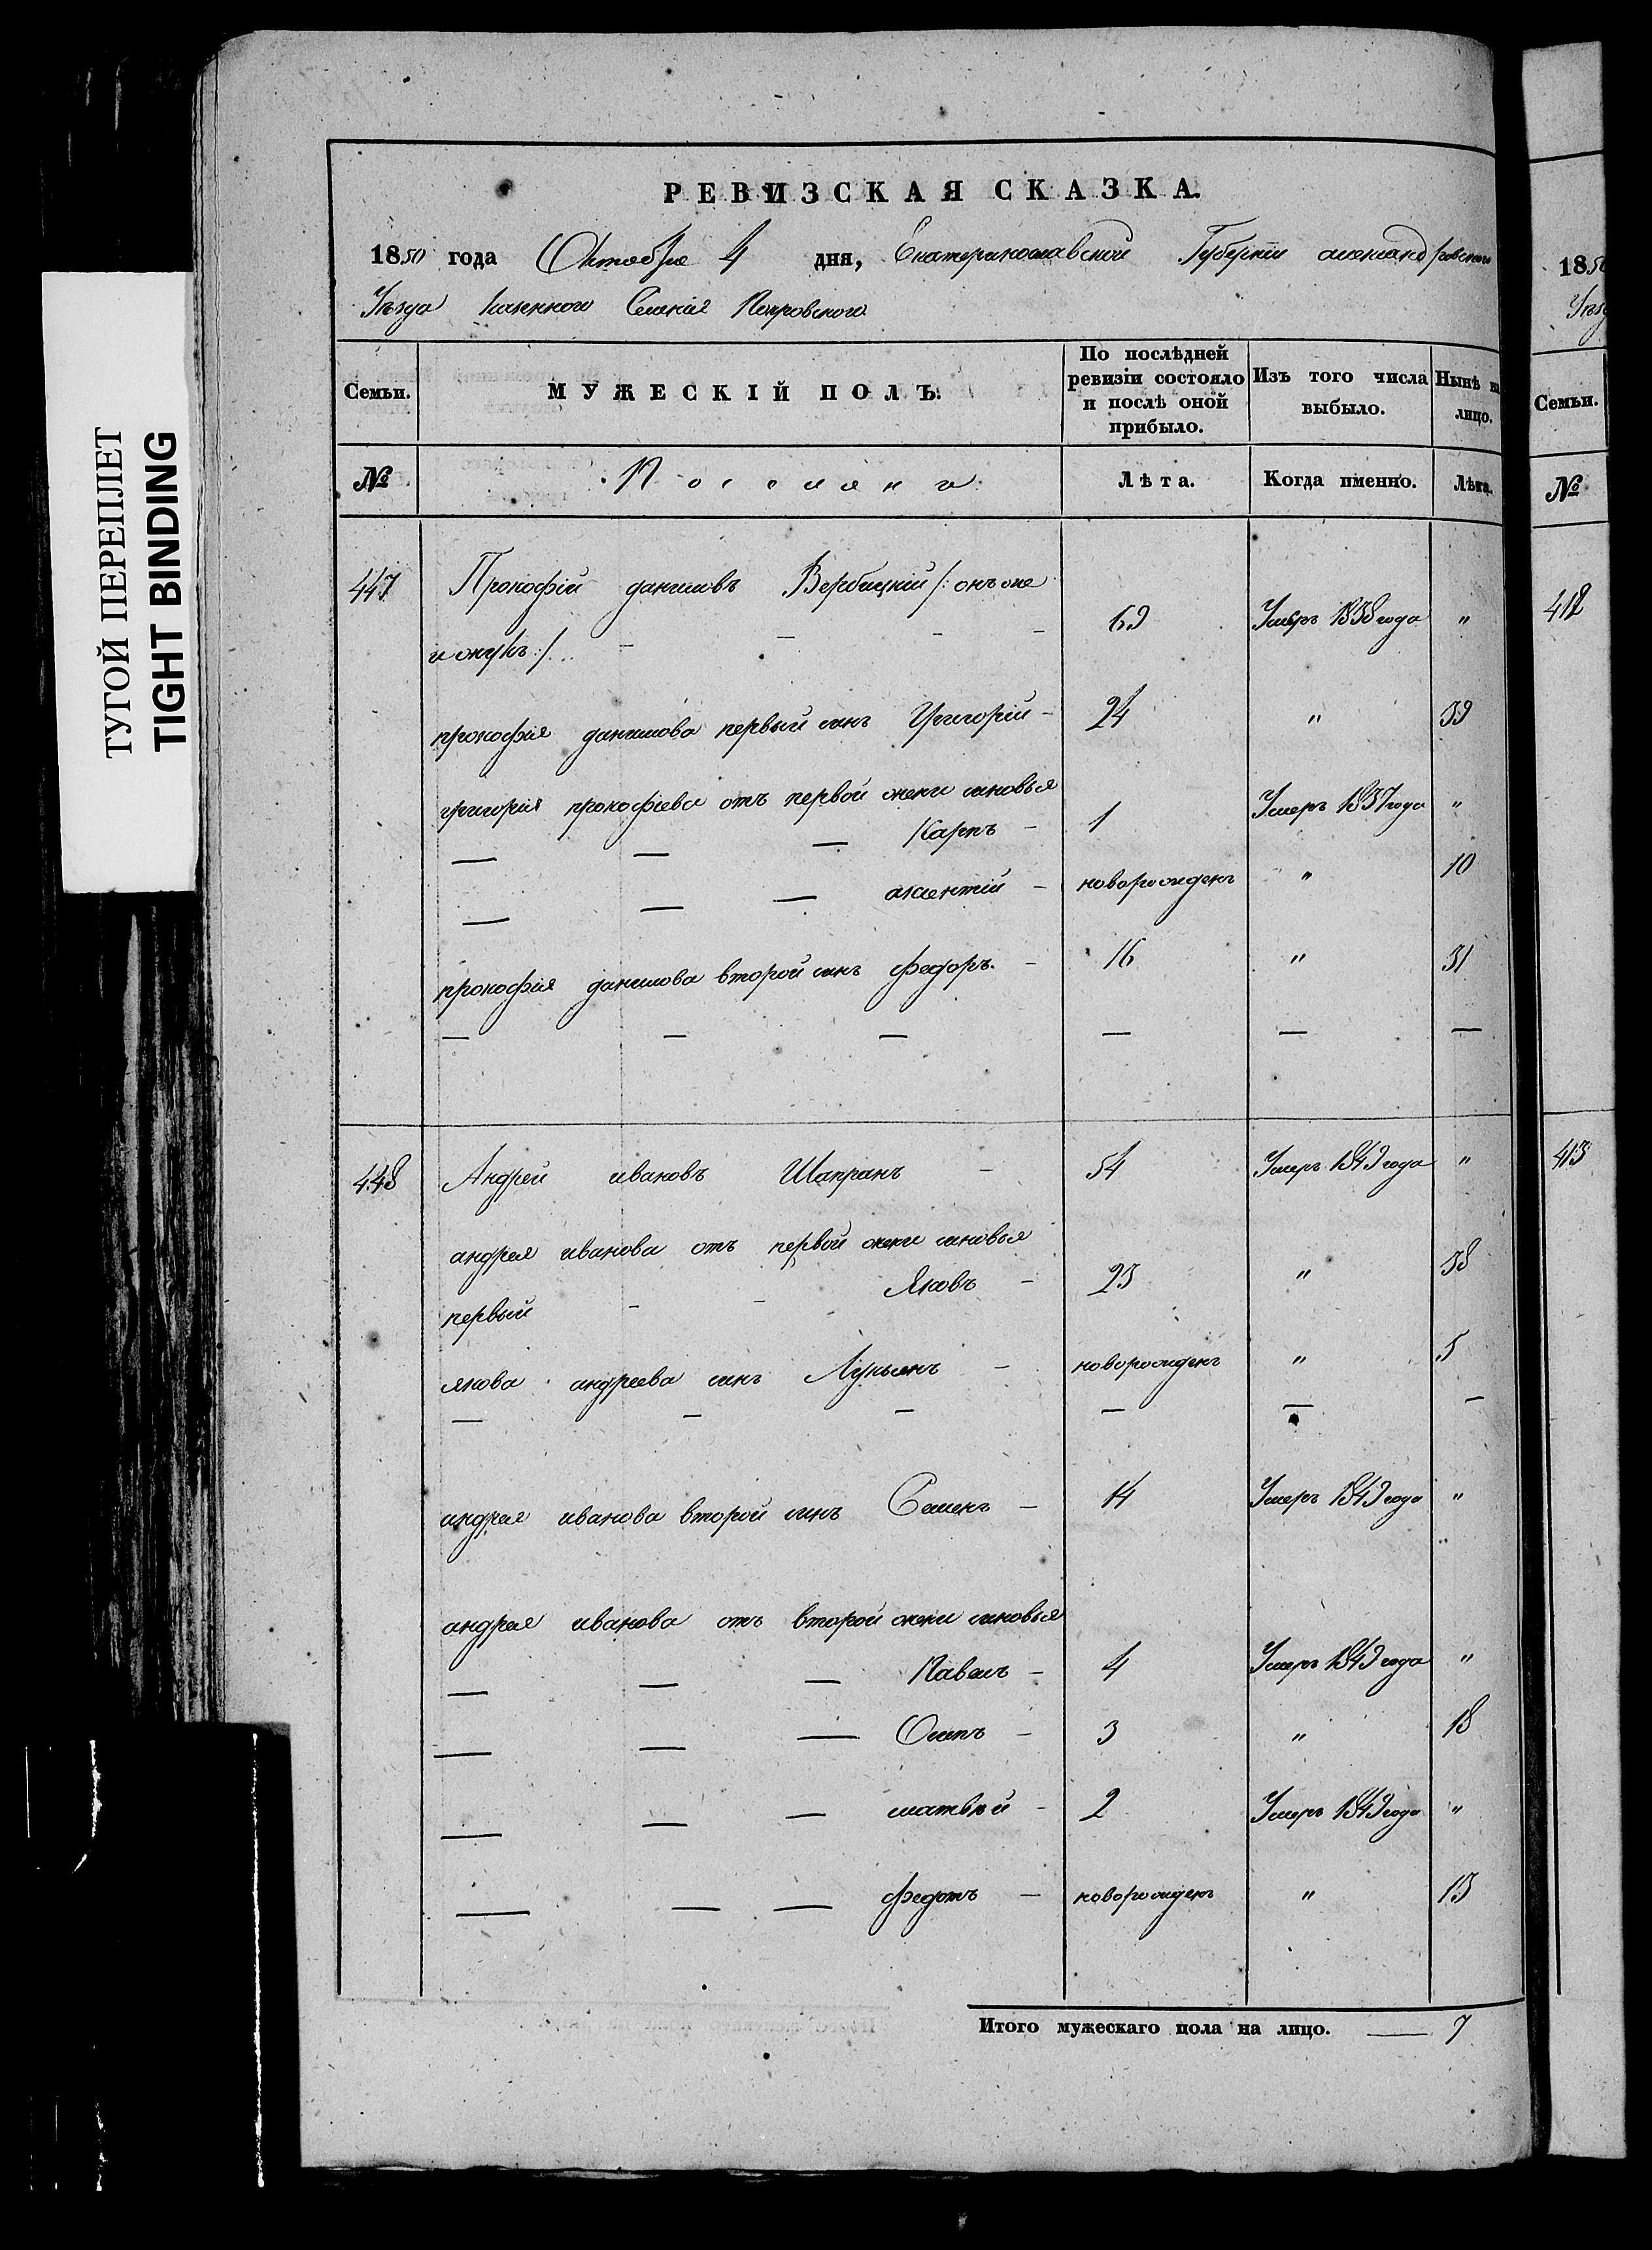 ТУГОЙ ПЕРЕПЛЕТ
TIGHT BINDING
РЕВИЗСКАЯ СКАЗКА.
1850 года Октября 4 дня, Екатеринославской Губерніи александровскаго
Уѣзда казеннаго Селенія Покровскаго
Семьи. МУЖЕСКІЙ ПОЛЪ. По послѣдней ревизіи состояло и послѣ оной прибыло. Изъ того числа выбыло. Нынѣ на лицо.
№ Поселяне Лѣта. Когда именно. Лѣта.
447 Прокофій даниловъ Вербицкій /: онъ же
и онукъ :/ 69 Умеръ 1838 года "
прокофія данилова первый сынъ Григорій - 24 " 39
григорія прокофіева отъ первой жены сыновья
Карпъ - 1 Умеръ 1837 года "
аксентій - новорожденъ " 10
прокофія данилова второй сынъ федоръ. - 16 " 31
448 Андрей ивановъ Шапранъ - 54 Умеръ 1849 года "
андрея иванова отъ первой жены сыновья
первый - - Яковъ - 23 " 38
якова андреева сынъ Лукьянъ - новорожденъ " 5
андрея иванова второй сынъ Семенъ - 14 Умеръ 1849 года "
андрея иванова отъ второй жены сыновья
Павелъ - 4 Умеръ 1849 года "
Осипъ - 3 " 18
матвѣй - 2 Умеръ 1849 года "
федотъ - новорожденъ " 13
Итого мужескаго пола на лицо. — 7
1850
Уѣзд
Семьи.
№
412
413